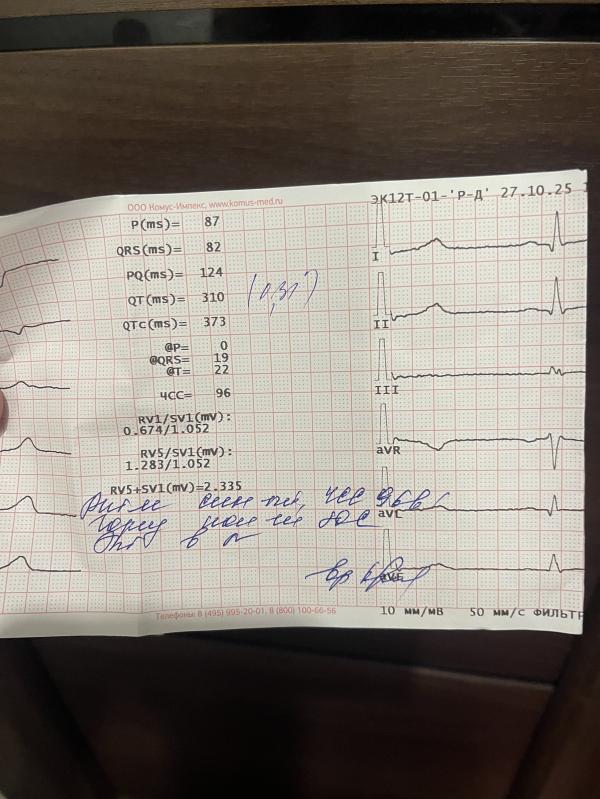 ООО Комус-Импекс, www.komus-med.ru
ЭК12Т-01-'Р-Д' 27.10.25
P(ms)= 87
QRS(ms)= 82
PQ(ms)= 124
QT(ms)= 310 (0,31")
QTC(ms)= 373
@P= 0
@QRS= 19
@T= 22
ЧСС= 96
RV1/SV1(mV):
0.674/1.052
RV5/SV1(mV):
1.283/1.052
RV5+SV1(mV)=2.335
Ритм ЧСС 96
I
II
III
aVR
aVL
aVF
Телефоны: 8 (495) 995-20-01, 8 (800) 100-66-56
10 мм/мВ 50 мм/с ФИЛЬТР